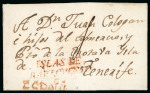 A Dn Juan Cologan
e hijos del Comercio
Pto de la Orotava Ysla
de
Tenerife.
ISLAS DE
ESPAÑA